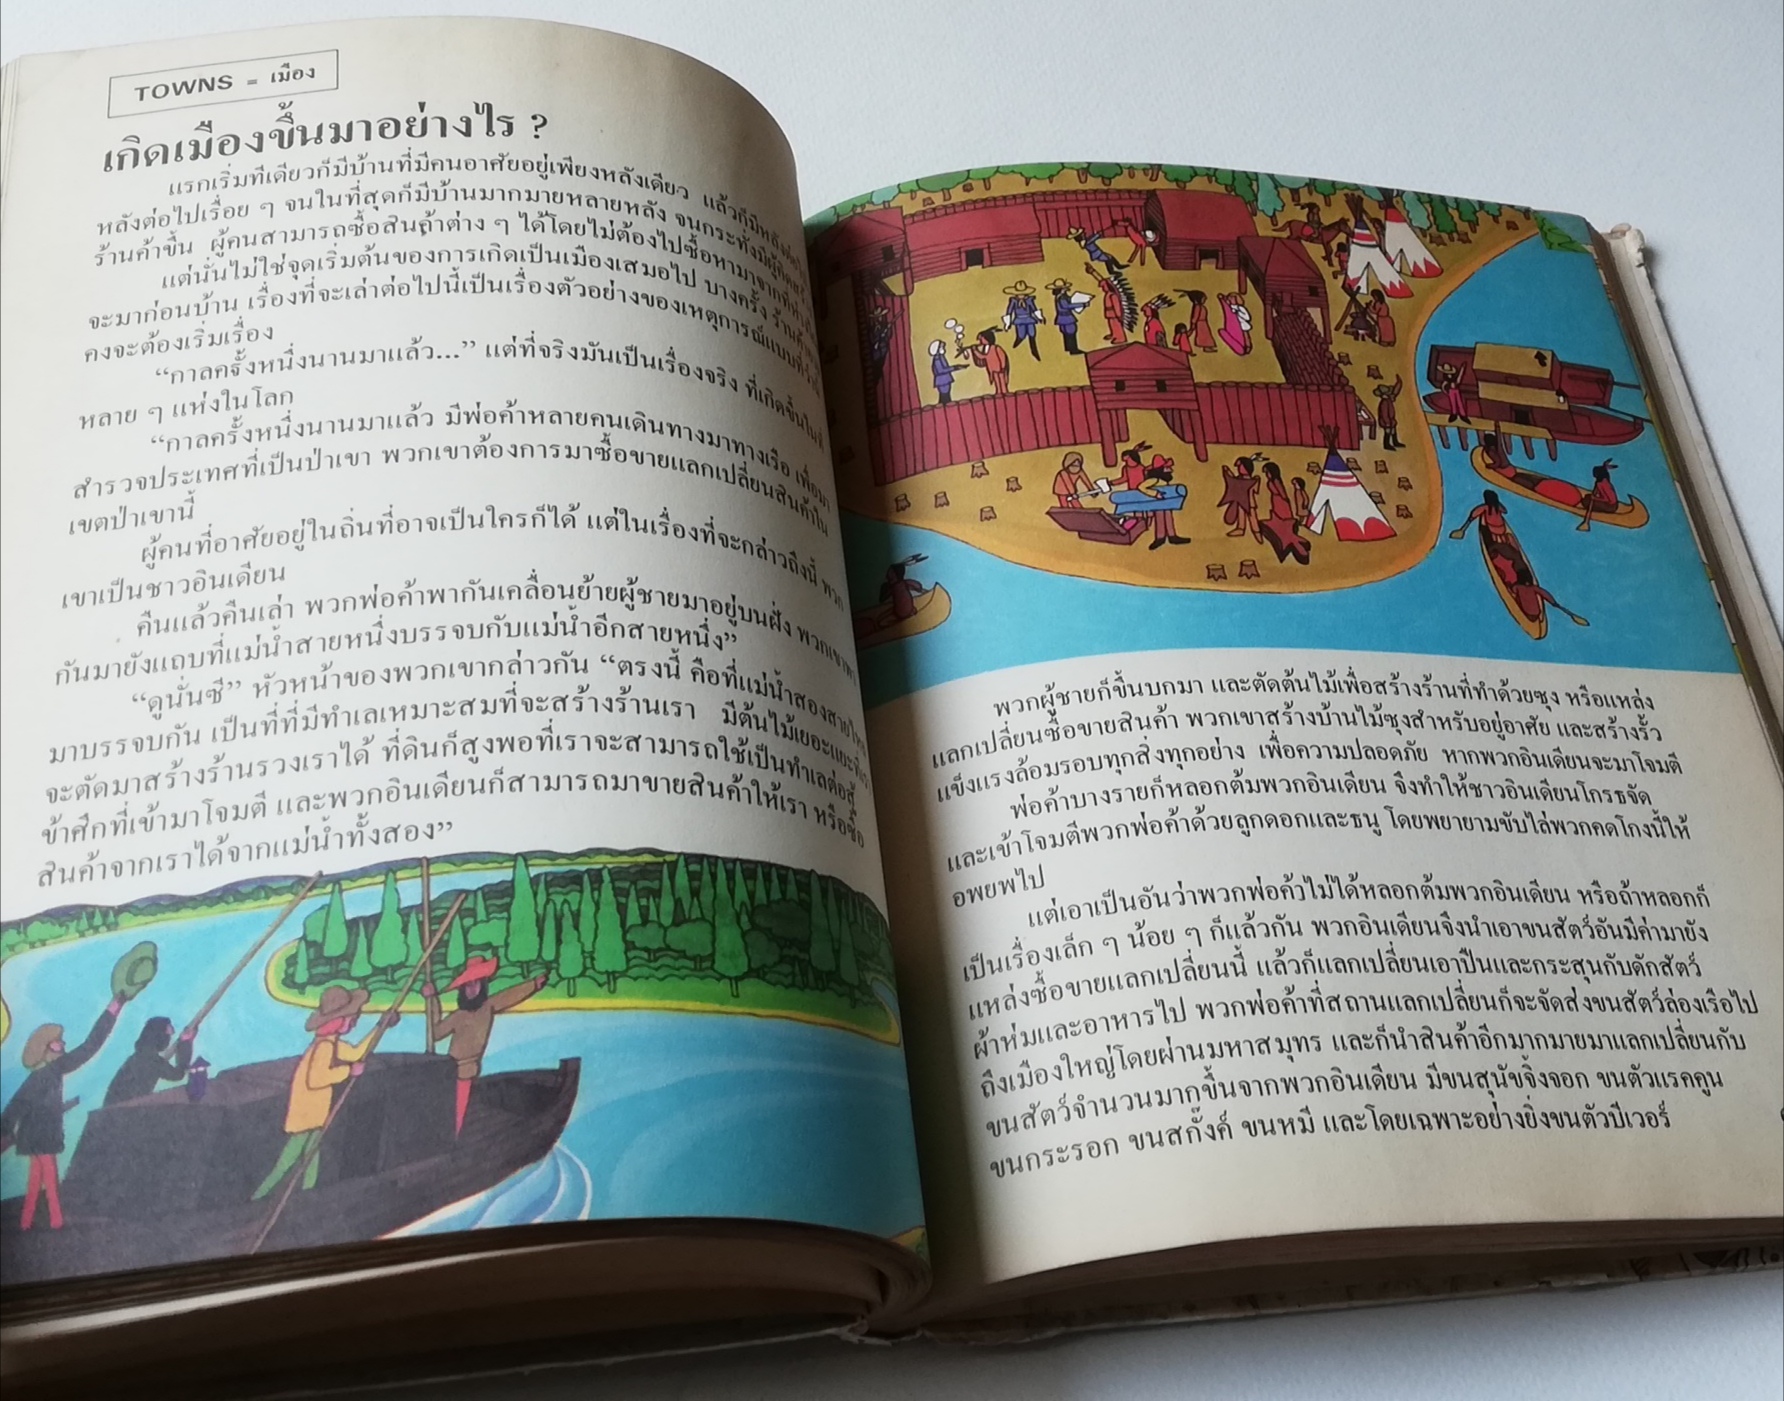 TOWNS = เมือง
เกิดเมืองขึ้นมาอย่างไร ?
แรกเริ่มทีเดียวก็มีบ้านที่มีคนอาศัยอยู่เพียงหลังเดียว แล้วก็มีหลัง
หลังต่อไปเรื่อย ๆ จนในที่สุดก็มีบ้านมากมายหลายหลัง จนกระทั่งมีผู้
ร้านค้าขึ้น ผู้คนสามารถซื้อสินค้าต่าง ๆ ได้โดยไม่ต้องไปซื้อหามาจากที่
แต่นั่นไม่ใช่จุดเริ่มต้นของการเกิดเป็นเมืองเสมอไป บางครั้ง ร้านค้า
จะมาก่อนบ้าน เรื่องที่จะเล่าต่อไปนี้เป็นเรื่องตัวอย่างของเหตุการณ์แบบที่
คงจะต้องเริ่มเรื่อง
“กาลครั้งหนึ่งนานมาแล้ว...” แต่ที่จริงมันเป็นเรื่องจริง ที่เกิดขึ้นใน
หลาย ๆ แห่งในโลก
“กาลครั้งหนึ่งนานมาแล้ว มีพ่อค้าหลายคนเดินทางมาทางเรือ เพื่อมา
สำรวจประเทศที่เป็นป่าเขา พวกเขาต้องการมาซื้อขายแลกเปลี่ยนสินค้าใน
เขตป่าเขานี้
ผู้คนที่อาศัยอยู่ในถิ่นที่อาจเป็นใครก็ได้ แต่ในเรื่องที่จะกล่าวถึงนี้ พวก
เขาเป็นชาวอินเดียน
คืนแล้วคืนเล่า พวกพ่อค้าพากันเคลื่อนย้ายผู้ชายมาอยู่บนฝั่ง พวกเขาพา
กันมายังแถบที่แม่น้ำสายหนึ่งบรรจบกับแม่น้ำอีกสายหนึ่ง”
“ดูนั่นซี” หัวหน้าของพวกเขากล่าวกัน “ตรงนี้ คือที่แม่น้ำสองสายไหล
มาบรรจบกัน เป็นที่ที่มีทำเลเหมาะสมที่จะสร้างร้านเรา มีต้นไม้เยอะแยะที่เรา
จะตัดมาสร้างร้านรวงเราได้ ที่ดินก็สูงพอที่เราจะสามารถใช้เป็นทำเลต่อสู้
ข้าศึกที่เข้ามาโจมตี และพวกอินเดียนก็สามารถมาขายสินค้าให้เรา หรือซื้อ
สินค้าจากเราได้จากแม่น้ำทั้งสอง”
พวกผู้ชายก็ขึ้นบกมา และตัดต้นไม้เพื่อสร้างร้านที่ทำด้วยซุง หรือแหล่ง
แลกเปลี่ยนซื้อขายสินค้า พวกเขาสร้างบ้านไม้ซุงสำหรับอยู่อาศัย และสร้างรั้ว
แข็งแรงล้อมรอบทุกสิ่งทุกอย่าง เพื่อความปลอดภัย หากพวกอินเดียนจะมาโจมตี
พ่อค้าบางรายก็หลอกต้มพวกอินเดียน จึงทำให้ชาวอินเดียนโกรธจัด
และเข้าโจมตีพวกพ่อค้าด้วยลูกดอกและธนู โดยพยายามขับไล่พวกคดโกงนี้ให้
อพยพไป
แต่เอาเป็นอันว่าพวกพ่อค้าไม่ได้หลอกต้มพวกอินเดียน หรือถ้าหลอกก็
เป็นเรื่องเล็ก ๆ น้อย ๆ ก็แล้วกัน พวกอินเดียนจึงนำเอาขนสัตว์อันมีค่ามายัง
แหล่งซื้อขายแลกเปลี่ยนนี้ แล้วก็แลกเปลี่ยนเอาปืนและกระสุนกับดักสัตว์
ผ้าห่มและอาหารไป พวกพ่อค้าที่สถานแลกเปลี่ยนก็จะจัดส่งขนสัตว์ล่องเรือไป
ถึงเมืองใหญ่โดยผ่านมหาสมุทร และก็นำสินค้าอีกมากมายมาแลกเปลี่ยนกับ
ขนสัตว์จำนวนมากขึ้นจากพวกอินเดียน มีขนสุนัขจิ้งจอก ขนตัวแรคคูน
ขนกระรอก ขนสกั๊งค์ ขนหมี และโดยเฉพาะอย่างยิ่งขนตัวบีเวอร์